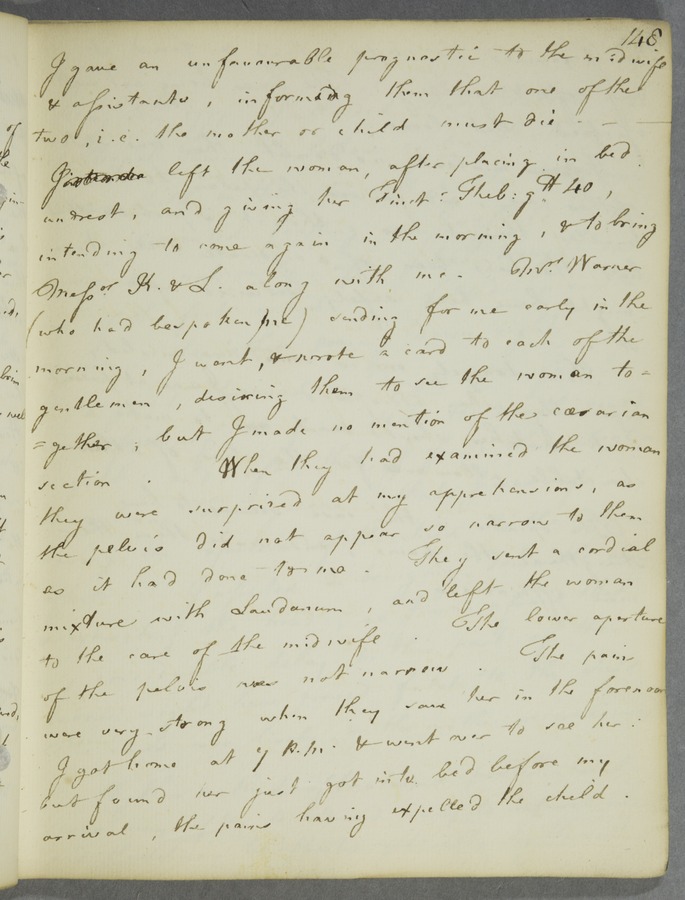 148
I gave an unfavourable prognostic to the midwife
& assistants, informing them that one of the
two, i.e. the mother or child must die. —
I left the woman, after placing in bed
undrest, and giving her Tinct: Theb: gtt 40,
intending to come again in the morning, & to bring
Messrs K. & L. along with me. Mrs Warner
(who had bespoken me) sending for me early in the
morning, I went, & wrote a card to each of the
gentlemen, desiring them to see the woman to=
=gether; but I made no mention of the cæsarian
section. When they had examined the woman
they were surprized at my apprehensions, as
the pelvis did not appear so narrow to them
as it had done to me. They sent a cordial
mixture with Laudanum, and left the woman
to the care of the midwife. The lower aperture
of the pelvis was not narrow. The pains
were very strong when they saw her in the forenoon
I got home at P.M. & went over to see her:
but found her just got into bed before my
arrival, the pains having expelled the child.